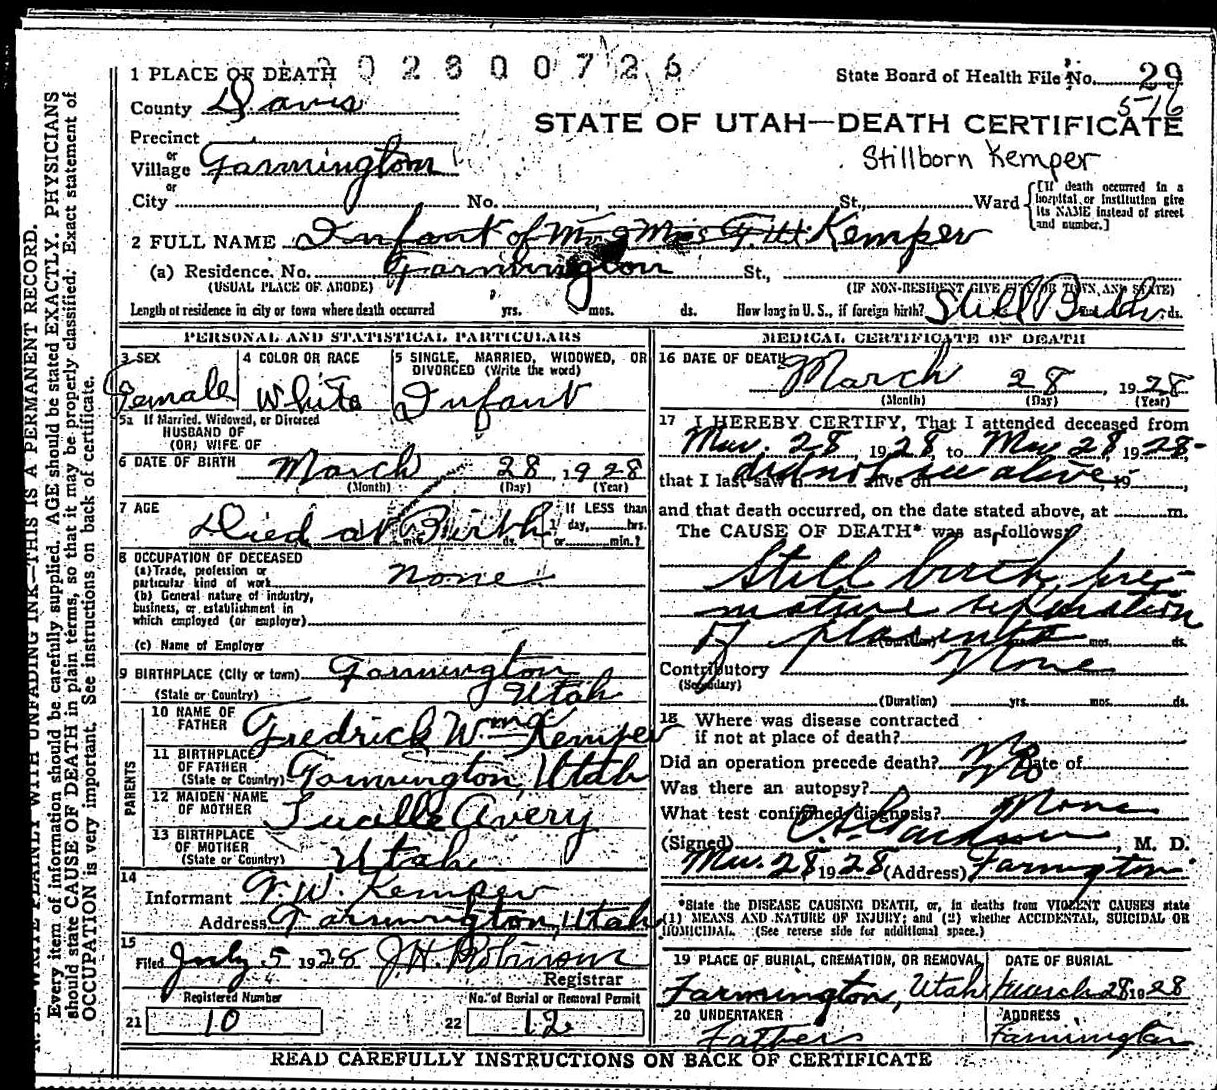 N. B. WRITE PLAINLY WITH UNFADING INK—THIS IS A PERMANENT RECORD.
Every item of information should be carefully supplied. AGE should be stated EXACTLY. PHYSICIANS
should state CAUSE OF DEATH in plain terms, so that it may be properly classified. Exact statement of
OCCUPATION is very important. See instructions on back of certificate.
002800726
State Board of Health File No. 29
5-16
1 PLACE OF DEATH
County Davis
STATE OF UTAH—DEATH CERTIFICATE
Stillborn Kemper
Precinct
or
Village Farmington
or
City No. St., Ward
[If death occurred in a hospital or institution give its NAME instead of street and number.]
2 FULL NAME Infant of Mr & Mrs F. W. Kemper
(a) Residence. No. Farmington St.,
(USUAL PLACE OF ABODE) (IF NON-RESIDENT GIVE CITY OR TOWN AND STATE)
Length of residence in city or town where death occurred yrs. mos. ds. How long in U. S., if foreign birth? Still Birth ds.
PERSONAL AND STATISTICAL PARTICULARS
3 SEX Female
4 COLOR OR RACE White
5 SINGLE, MARRIED, WIDOWED, OR DIVORCED (Write the word) Infant
5a If Married, Widowed, or Divorced
HUSBAND OF
(OR) WIFE OF
6 DATE OF BIRTH March 28 1928
(Month) (Day) (Year)
7 AGE Died at Birth
mos. ds.
If LESS than
1 day, hrs.
or min.?
8 OCCUPATION OF DECEASED
(a) Trade, profession or
particular kind of work none
(b) General nature of industry,
business, or establishment in
which employed (or employer)
(c) Name of Employer
9 BIRTHPLACE (City or town) Farmington
(State or Country) Utah
PARENTS
10 NAME OF FATHER Fredrick Wm Kemper
11 BIRTHPLACE OF FATHER (State or Country) Farmington, Utah
12 MAIDEN NAME OF MOTHER Lucille Avery
13 BIRTHPLACE OF MOTHER (State or Country) Utah
14 Informant F. W. Kemper
Address Farmington, Utah
15 Filed July 5 1928 J. H. Robinson
Registrar
Registered Number No. of Burial or Removal Permit
21 10 22 12
MEDICAL CERTIFICATE OF DEATH
16 DATE OF DEATH March 28, 1928
(Month) (Day) (Year)
17 I HEREBY CERTIFY, That I attended deceased from
Mar. 28, 1928, to Mar 28 1928
that I last saw h alive on did not see alive, 19
and that death occurred, on the date stated above, at m.
The CAUSE OF DEATH* was as follows:
Still birth, pre-
mature separation
of placenta
(Duration) mos. ds.
Contributory None
(Secondary)
(Duration) yrs. mos. ds.
18 Where was disease contracted
if not at place of death?
Did an operation precede death? No Date of
Was there an autopsy? No
What test confirmed diagnosis? None
(Signed) , M. D.
Mar. 28 1928 (Address) Farmington
*State the DISEASE CAUSING DEATH, or, in deaths from VIOLENT CAUSES state
(1) MEANS AND NATURE OF INJURY; and (2) whether ACCIDENTAL, SUICIDAL OR
HOMICIDAL. (See reverse side for additional space.)
19 PLACE OF BURIAL, CREMATION, OR REMOVAL DATE OF BURIAL
Farmington, Utah March 28 1928
20 UNDERTAKER ADDRESS
Father Farmington
READ CAREFULLY INSTRUCTIONS ON BACK OF CERTIFICATE